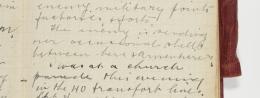 enemy military points
factories, sports
The enemy is sending
over occasional shells
between here & somewhere
I was at a church
parade this evening
in the HQ transport lines.